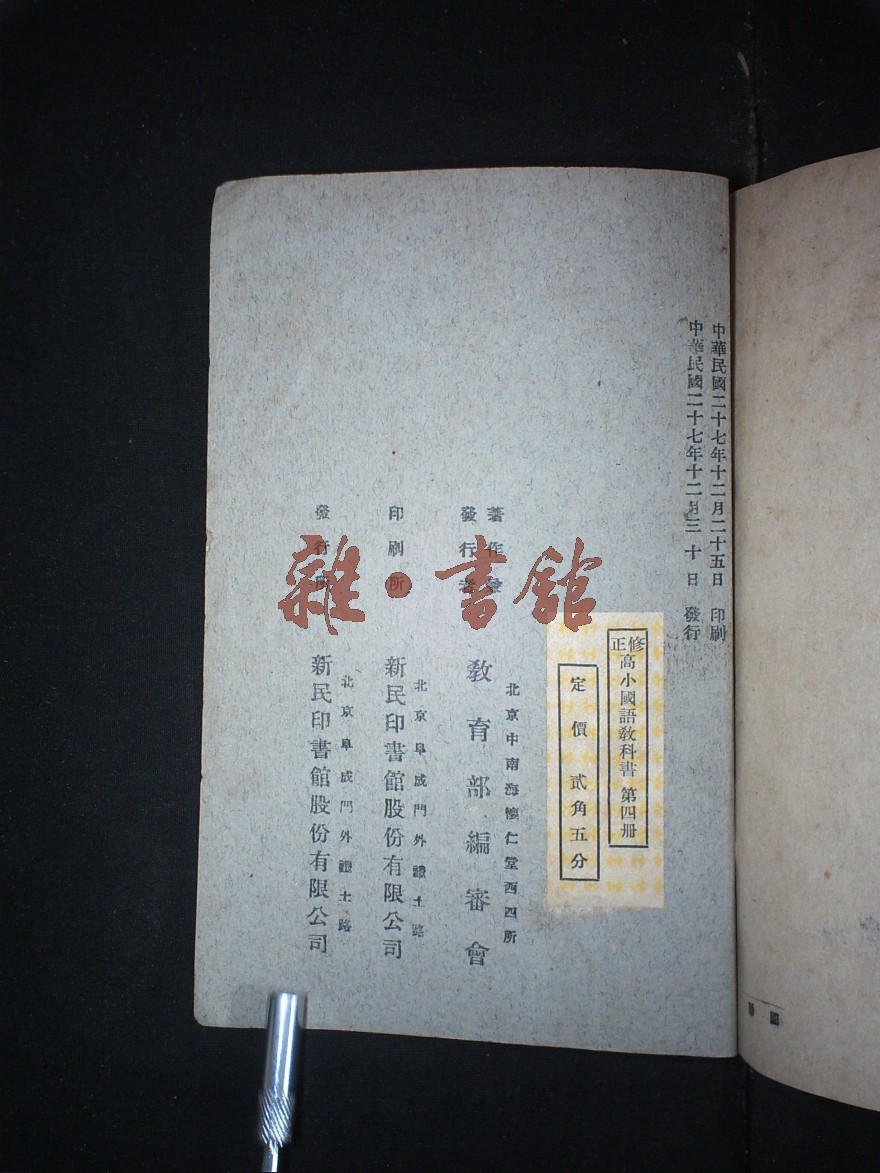 中華民國二十七年十二月二十五日 印刷
中華民國二十七年十二月三十日 發行
修正高小國語教科書 第四册
定價 貳角五分
著作兼
發行者
北京中南海懷仁堂西四所
教育部編審會
印刷所
北京阜成門外禮士路
新民印書館股份有限公司
發行所
北京阜成門外禮士路
新民印書館股份有限公司
雜·書館